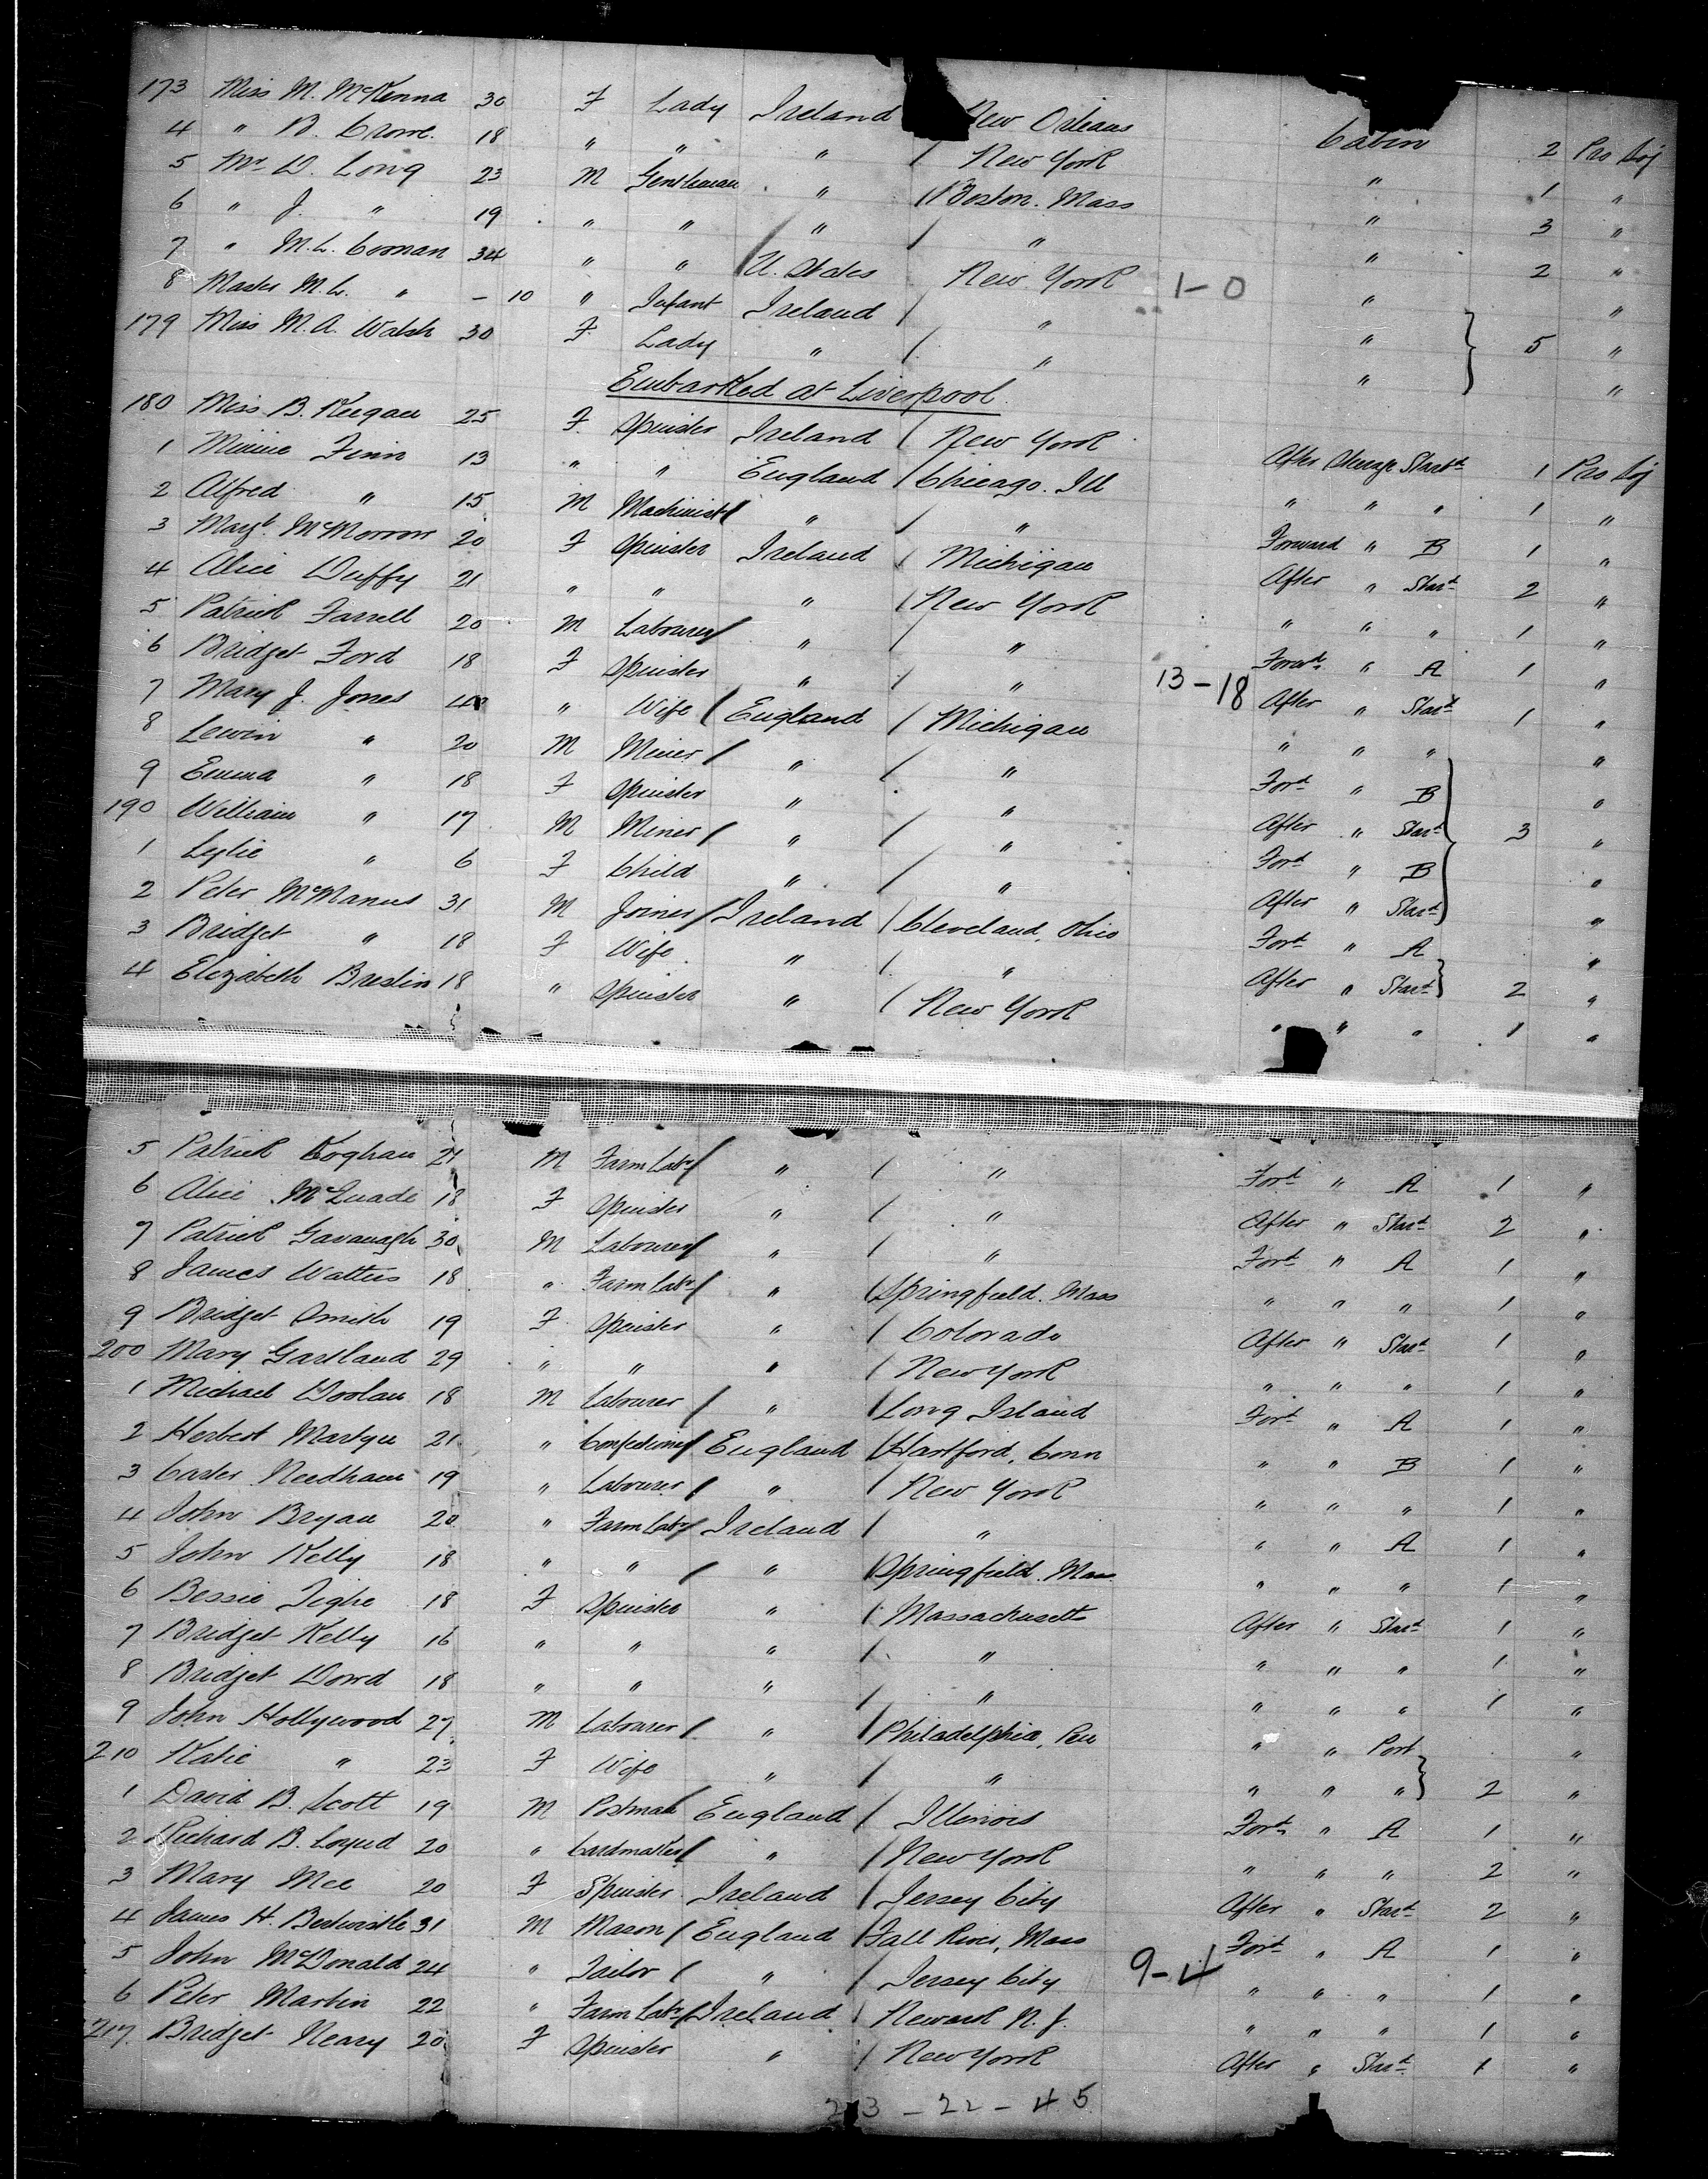 173 Miss M. McKenna 30 F Lady Ireland New Orleans Cabin 2 Pro Soj
4 " B. Crowe. 18 " " " / New York " 1 "
5 Mr D. Long 23 M Gentleman " / Boston. Mass " 3 "
6 " J. " 19 " " " / " " 2 "
7 " M.L. 34 " " / U. States New York 1-0 " "
8 Master M.L. " - 10 " Infant Ireland / " " } 5 "
179 Miss M.A. Walsh 30 F Lady " / " " "
Embarked at Liverpool.
180 Miss B. Keegan 25 F Spinster Ireland / New York After Steerage Starbd 1 Pro Soj
1 Minnie Finn 13 " " England / Chicago. Ill " " " 1 "
2 Alfred " 15 M Machinist / " / " Forward " B 1 "
3 Margt. McMorrow 20 F Spinster Ireland / Michigan After " Stard 2 "
4 Alice Duffy 21 " " " / New York " " " 1 "
5 Patrick Farrell 20 M Labourer / " / " Forwd " A 1 "
6 Bridget Ford 18 F Spinster " / " 13-18 After " Stard 1 "
7 Mary J. Jones " Wife / England / Michigan " " " "
8 Lewin " 20 M Miner / " / " Ford " B "
9 Emma " 18 F Spinster " " After " Stard } 3 "
190 William " 17 M Miner / " / " Ford " B "
1 Leslie " 6 F Child " / " After " Stard "
2 Peter McManus 31 M Joiner / Ireland / Cleveland, Ohio Ford " A "
3 Bridget " 18 F Wife " / " After " Stard } 2 "
4 Elizabeth Breslin 18 " Spinster " / New York " " " 1 "
5 Patrick Koghan M Farm Labr / " / " Ford " A 1 "
6 Alice McQuade 18 F Spinster " / " After " Stard 2 "
7 Patrick Gavanagh 30 M Labourer / " / " Ford " A 1 "
8 James Watters 18 " Farm Labr / " / Springfield. Mass " " " 1 "
9 Bridget Smith 19 F Spinster " / Colorado After " Stard 1 "
200 Mary Gartland 29 " " " / New York " " " 1 "
1 Michael Doolan 18 M Labourer / " / Long Island Ford " A 1 "
2 Herbert Martyn 21 " Confectioner / England / Hartford, Conn " " B 1 "
3 Carter Needham 19 " Labourer / " / New York " " " 1 "
4 John Bryan 20 " Farm Labr / Ireland / " " " A 1 "
5 John Kelly 18 " " / " / Springfield. Mass " " " 1 "
6 Bessie Tighe 18 F Spinster " / Massachusetts After " Stard 1 "
7 Bridget Kelly 16 " " " / " " " " 1 "
8 Bridget Dowd 18 " " " / " " " " 1 "
9 John Hollywood 27 M Labourer / " / Philadelphia, Pen " " Port "
210 Katie " 23 F Wife " / " " " " } 2 "
1 David B. Scott 19 M Postman / England / Illinois Ford " A 1 "
2 Richard B. 20 " Cardmaker / " / New York " " " 2 "
3 Mary Mee 20 F Spinster Ireland / Jersey City After " Stard 2 "
4 James H. Bertwistle 31 M Mason / England / Fall River, Mass Ford " A 1 "
5 John McDonald 24 " Tailor / " / Jersey City 9-4 " " " 1 "
6 Peter Martin 22 " Farm Labr / Ireland / Newark N. J. " " " 1 "
217 Bridget Neary 20 F Spinster " / New York After " Stard 1 "
23 - 22 - 45